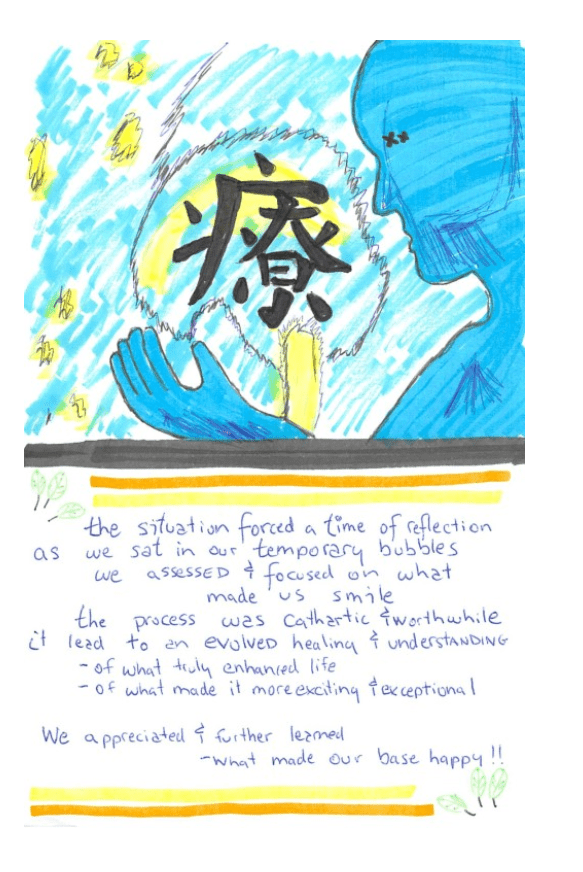 療
the situation forced a time of reflection
as we sat in our temporary bubbles
we assessED & focused on what
made us smile
the process was cathartic & worthwhile
it lead to an evolved healing & understANDING
- of what truly enhanced life
- of what made it more exciting & exceptional
We appreciated & further learned
- what made our base happy!!